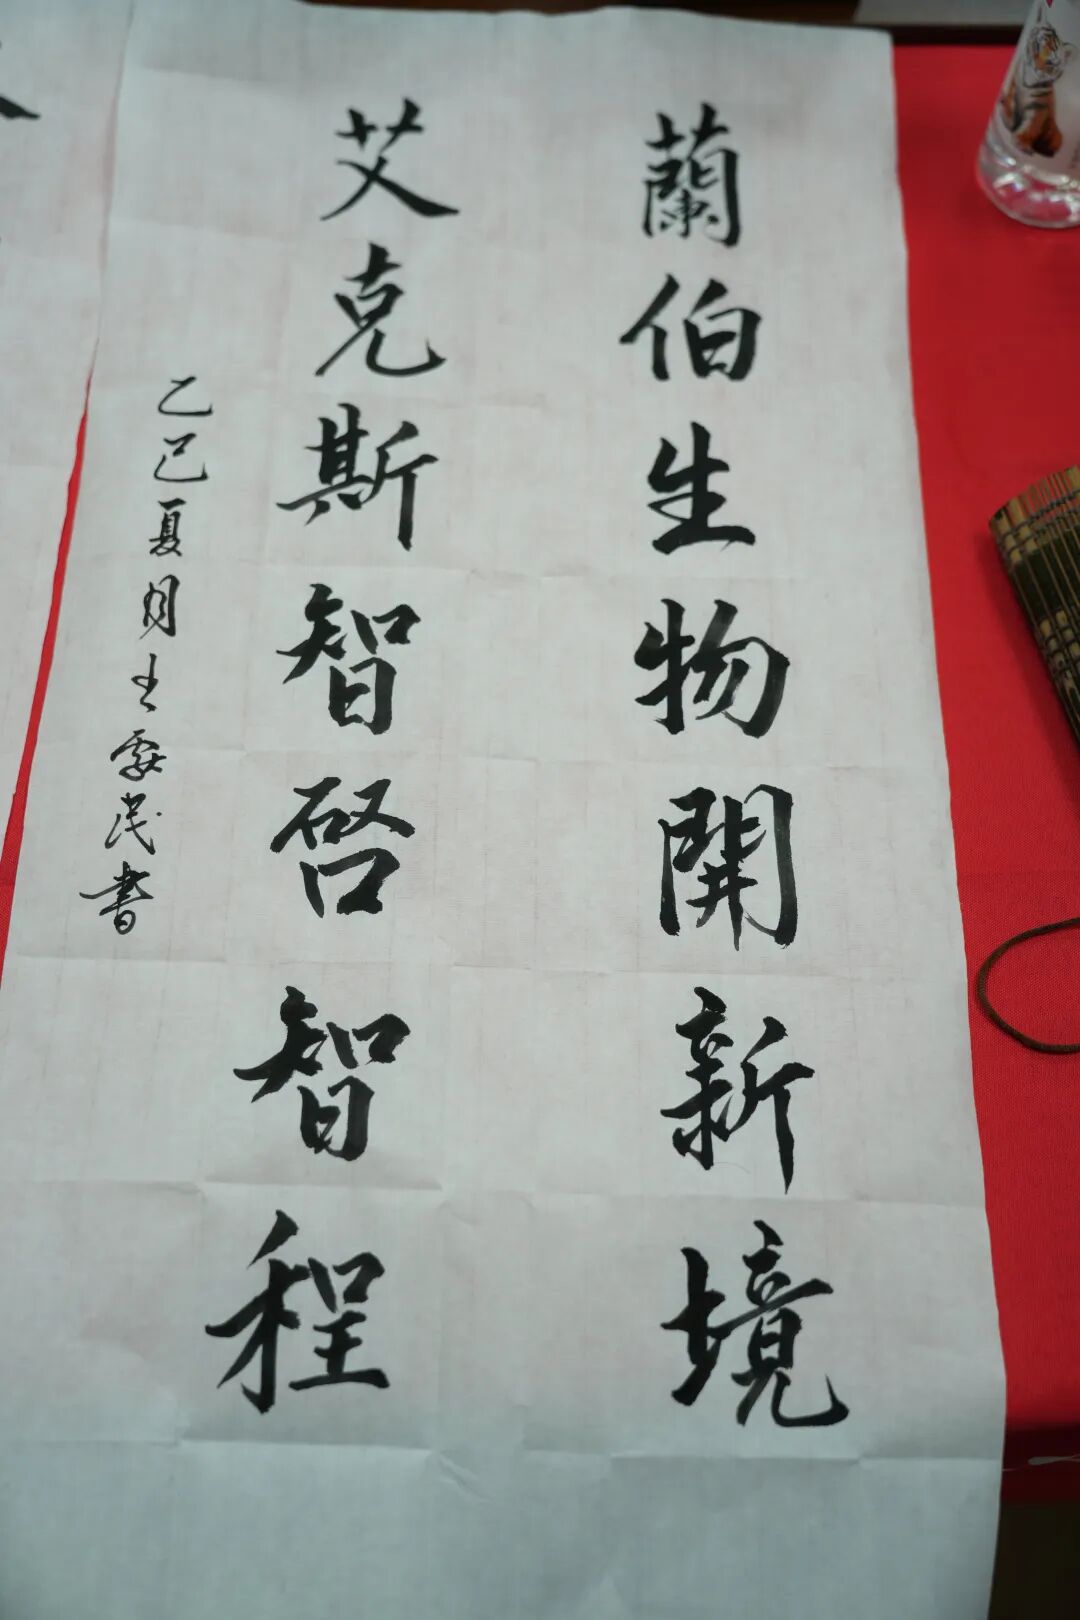 蘭伯生物開新境
艾克斯智啓智程
乙巳夏月王霖茂書